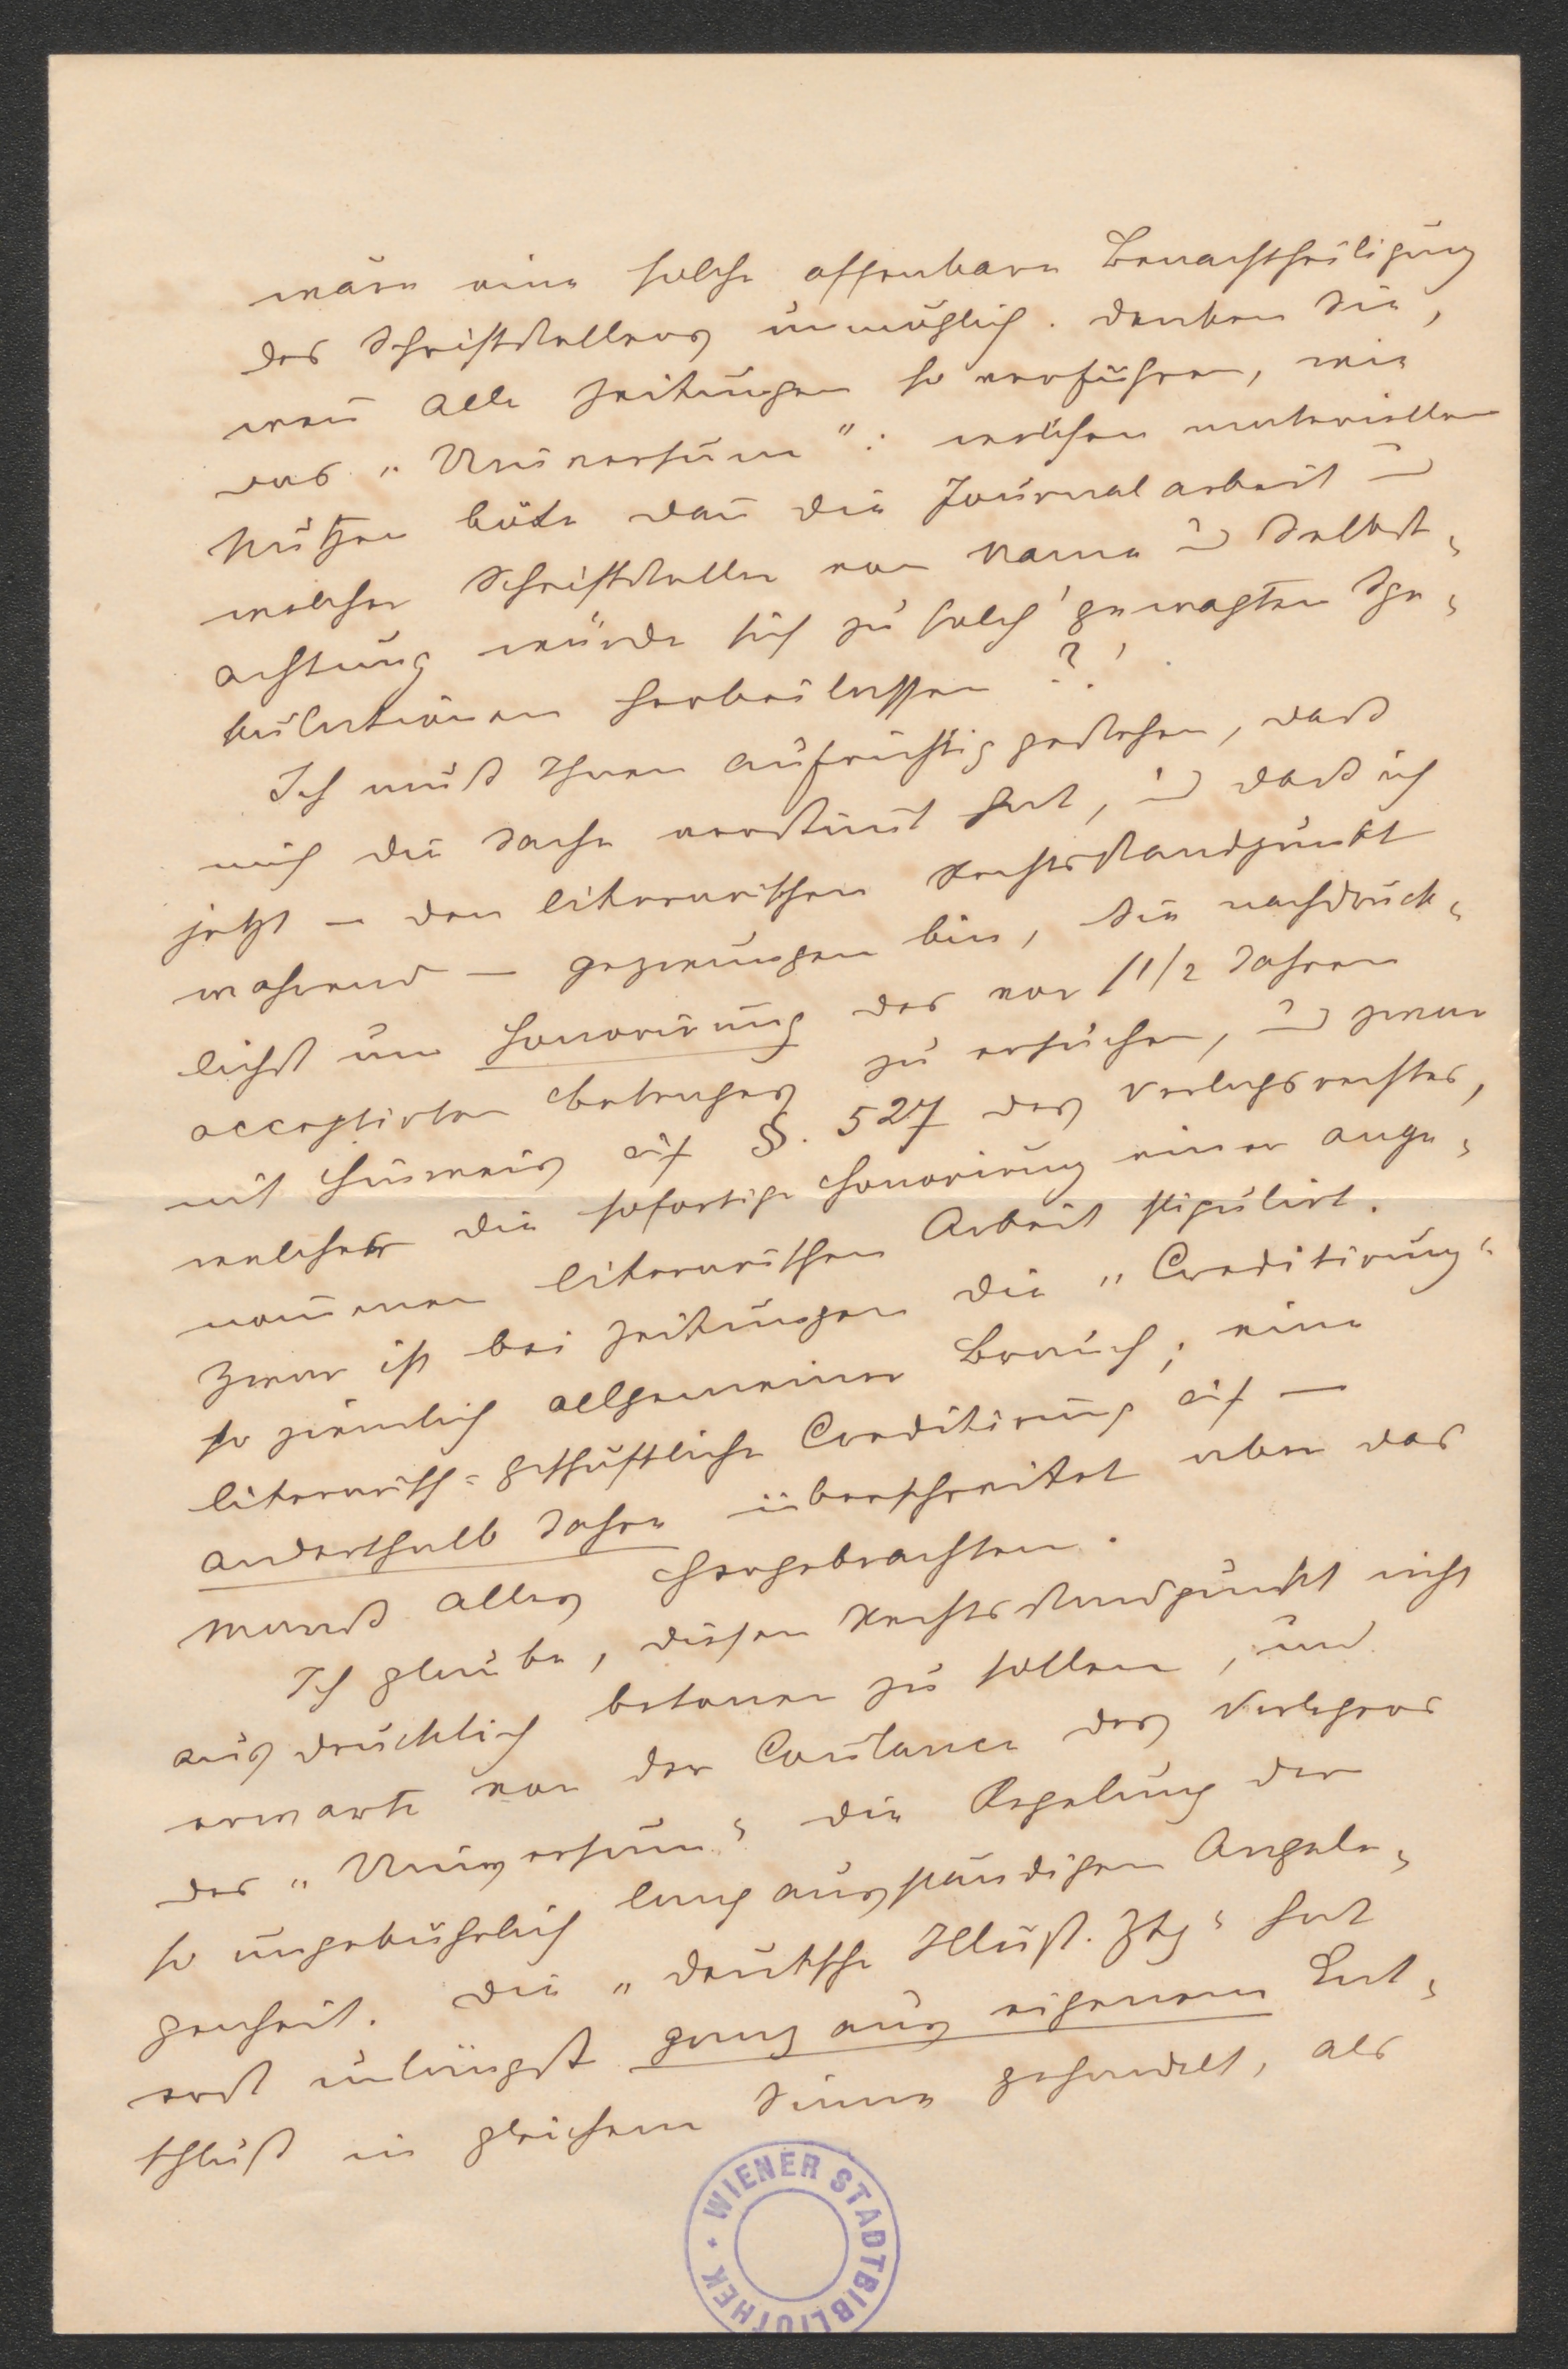 wäre eine solche offenbare Benachtheiligung
des Schriftstellers unmöglich. Denken Sie,
wen̄ alle Zeitungen so verführen, wie
das „Universum“: welchen materiellen
Nutzen böte dan̄ die Journalarbeit u
welcher Schriftsteller von Name u Selbst-
achtung würde sich zu solch' gewagten Spe-
kulationen herbeilassen?!
Ich muß Ihnen aufrichtig gestehen, daß
mich die Sache verstim̄t hat, u daß ich
jetzt – den literarischen Rechtsstandpunkt
wahrend – gezwungen bin, Sie nachdrück-
lichst um Honorirung des vor 1 1/2 Jahren
acceptirten Betrages zu ersuchen, u zwar
mit Hinweis auf §. 527 des Verlagsrechtes,
welcher die sofortige Honorirung einer ange-
nom̄enen literarischen Arbeit stipulirt.
Zwar ist bei Zeitungen die „Creditirung“
so ziemlich allgemeiner Brauch; eine
literarisch-geschäftliche Creditirung auf –
anderthalb Jahre überschreitet aber das
Maß alles Hergebrachten.
Ich glaube, diesen Rechtsstandpunkt nicht
ausdrücklich betonen zu sollen, und
erwarte von der Coulance des Verlegers
des „Universum“ die Regelung der
so ungebührlich lang ausständigen Angele-
genheit. Die „Deutsche Illust. Ztg“ hat
erst unlängst ganz aus eigenem Ent-
schluß in gleichem Sinne gehandelt, als
WIENER STADTBIBLIOTHEK